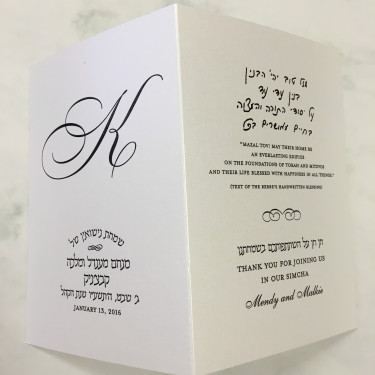 K
שמחת נישואין של
מנחם מענדל ומלכה
ג׳ שבט, התשע״ו שנת הקהל
JANUARY 13, 2016
מזל טוב יהי׳ הבנין
בנין עדי עד
על יסודי התורה והמצוה
"MAZAL TOV! MAY THEIR HOME BE
AN EVERLASTING EDIFICE
ON THE FOUNDATIONS OF TORAH AND MITZVOS
AND THEIR LIFE BLESSED WITH HAPPINESS IN ALL THINGS."
(TEXT OF THE REBBE'S HANDWRITTEN BLESSING)
THANK YOU FOR JOINING US
IN OUR SIMCHA
Mendy and Malkie